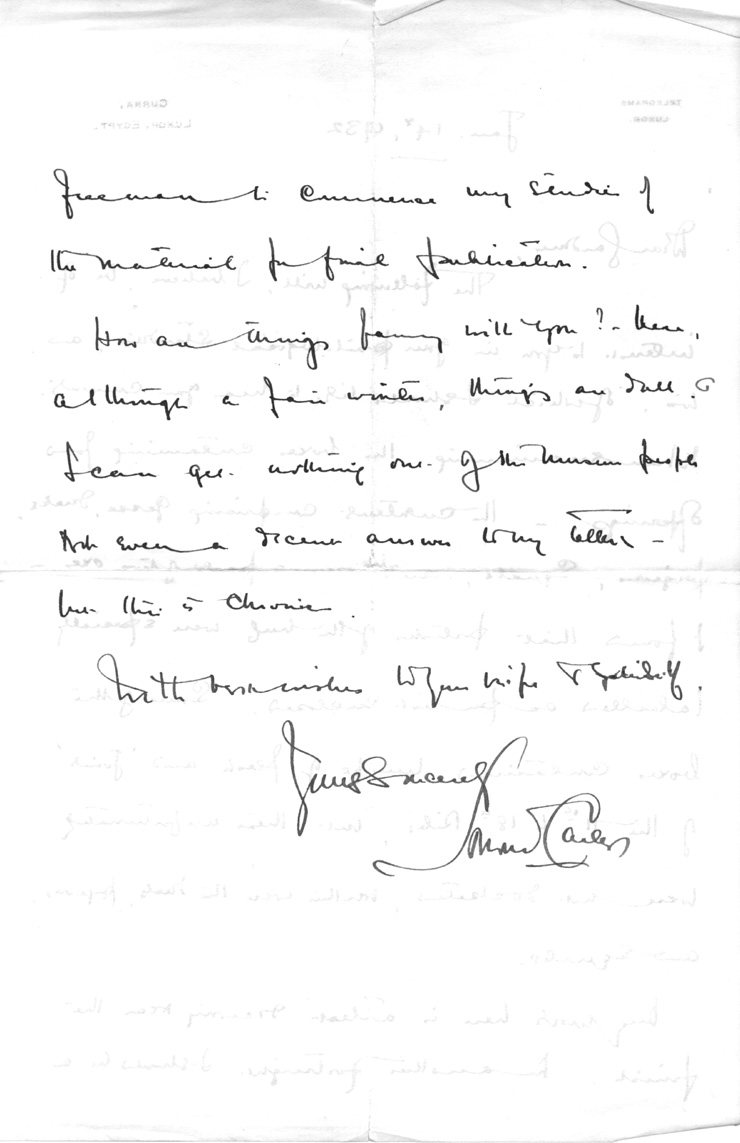 Freeman to commence my studies of
the material for final publication.
How are things faring with you? - Here,
although a fair winter, things are dull. &
I can get nothing out of the Museum people
Not even a decent answer to my letters -
but this is chronic.
With best wishes to your wife &
Yours Sincerely
Howard Carter